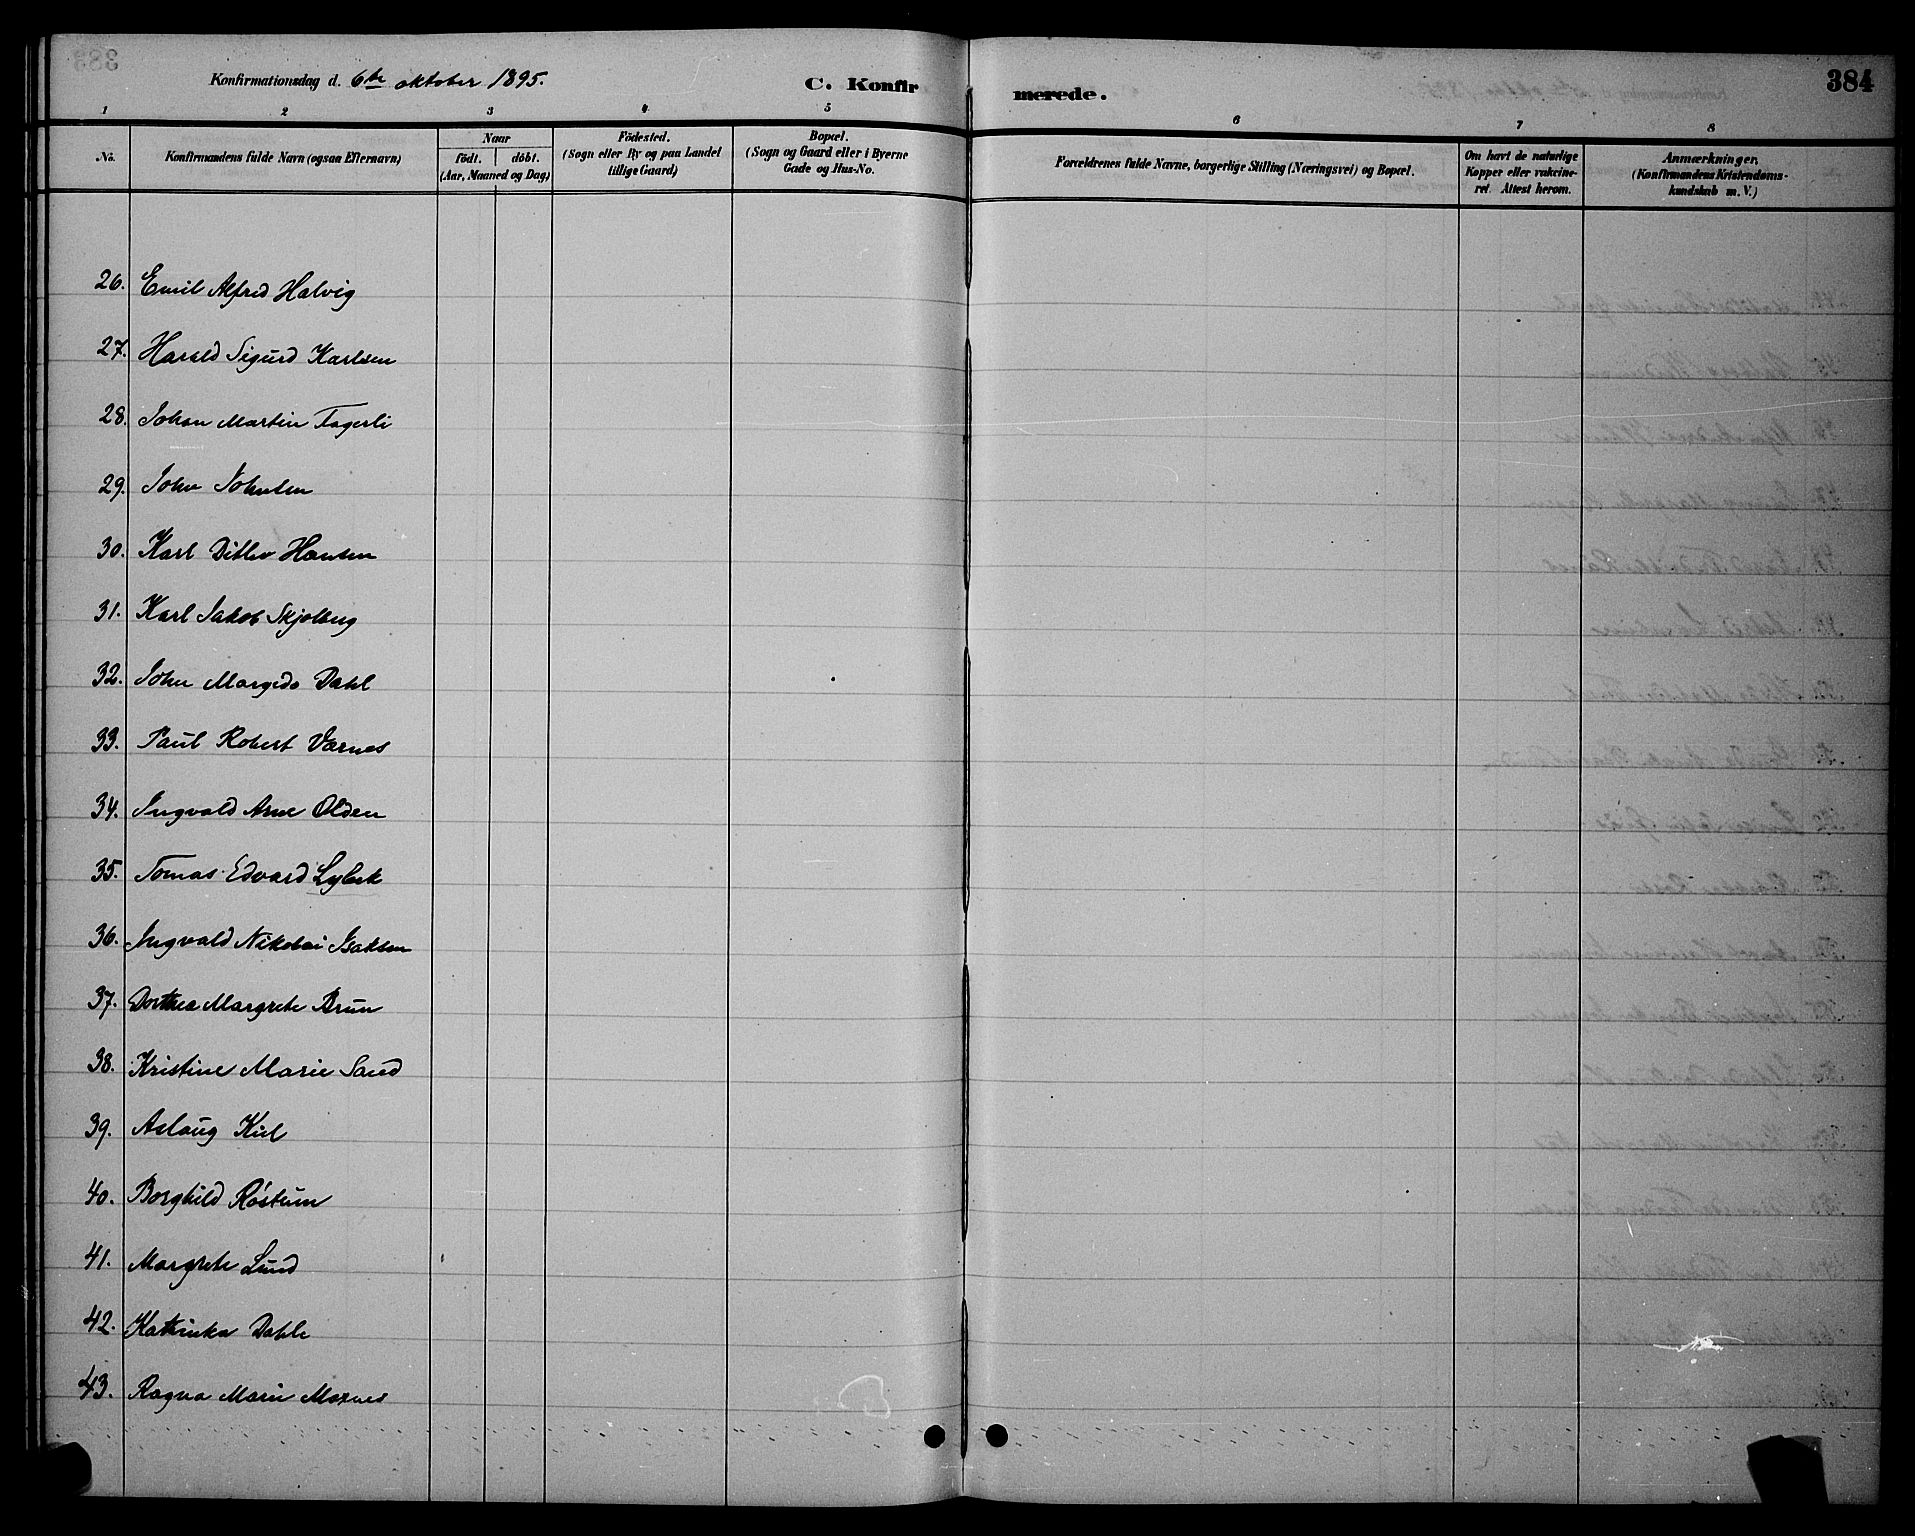 Konfirmationsdag d. 6te oktober 1895.
C. Konfirmerede.
384
1 2 3 4 5 6 7 8
No.
Konfirmandens fulde Navn (ogsaa Efternavn)
Naar
födt. döbt.
(Aar, Maaned og Dag)
Födested.
(Sogn eller By og paa Landet
tillige Gaard)
Bopæl.
(Sogn og Gaard eller i Byerne
Gade og Hus-No.
Forældrenes fulde Navne, borgerlige Stilling (Næringsvei) og Bopæl.
Om havt de naturlige
Kopper eller vakcine-
ret. Attest herom.
Anmærkninger.
(Konfirmandens Kristendoms-
kundskab m. V.)
26. Emil Alfred Halvig
27. Harald Sigurd Karlsen
28. Johan Martin Fagerli
29. John Johnsen
30. Karl Ditlev Hansen
31. Karl Jakob Skjelberg
32. John Dahl
33. Paul Robert Værnes
34. Ingvald Arne Olden
35. Tomas Edvard Lybek
36. Ingvald Nikolai Isaksen
37. Dorthea Margrete Brun
38. Kristine Marie Sand
39. Aslaug Kiel
40. Borghild Röstum
41. Margrete Lund
42. Kathinka Dahle
43. Ragna Marie Moxnes